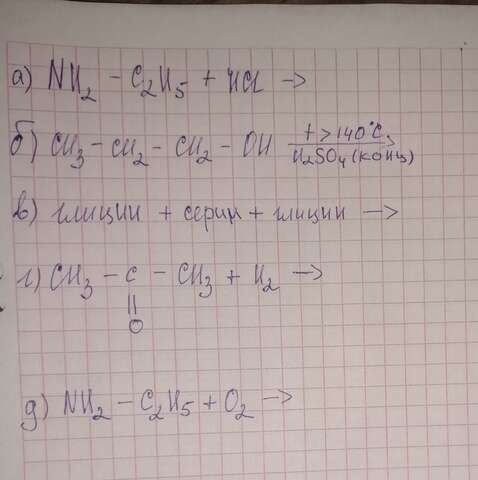 а) NH2 – C2H5 + HCl →
б) CH3 – CH2 – CH2 – OH t > 140°C → H2SO4 (конц)
в) глицин + серин + глицин →
г) CH3 – C – CH3 + H2 →
||
O
д) NH2 – C2H5 + O2 →